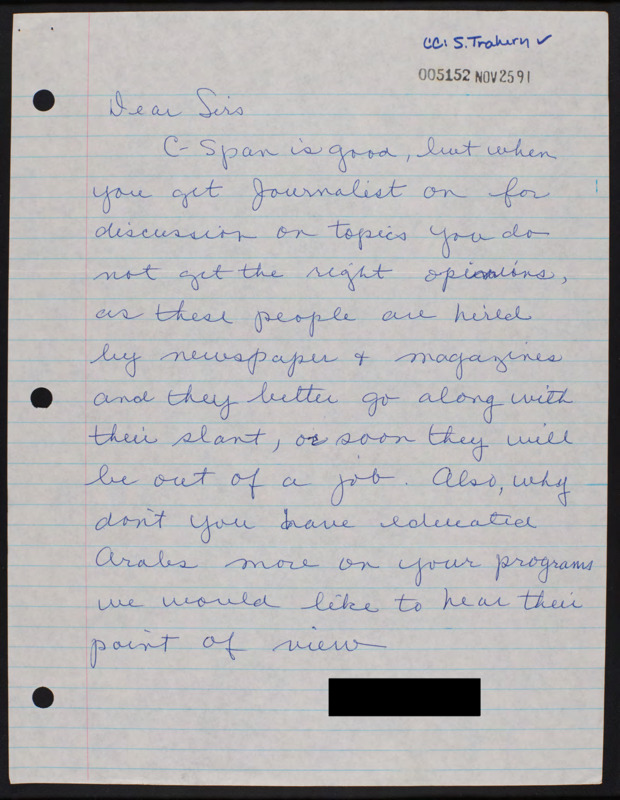 cc: S. Trahern ✓
005152 NOV 25 91
Dear Sirs
C-Span is good, but when
you get Journalist on for
discussion on topics you do
not get the right opinions,
as these people are hired
by newspaper & magazines
and they better go along with
their slant, or soon they will
be out of a job. Also, why
don't you have educated
Arabs more on your programs
we would like to hear their
point of view